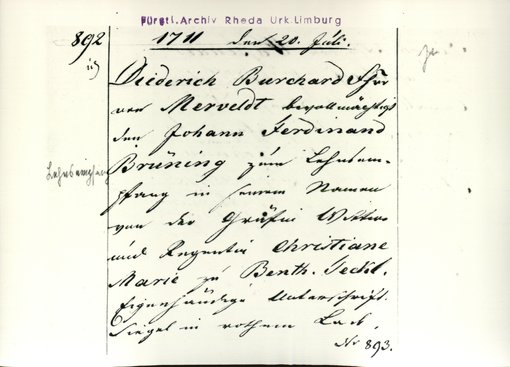 Fürstl. Archiv Rheda Urk. Limburg
892
1711 den 20. Juli.
Diederich Burchard Fhr
von Merveldt bevollmächtigt
den Johann Ferdinand
Brüning zum Lehnsem-
Lehnsempfang
pfang in seinem Namen
von der Gräfin Wittwe
und Regentin Christiane
Marie zu Benth. Teckl.
Eigenhändige Unterschrift.
Siegel in rothem Lack.
Nr 893.